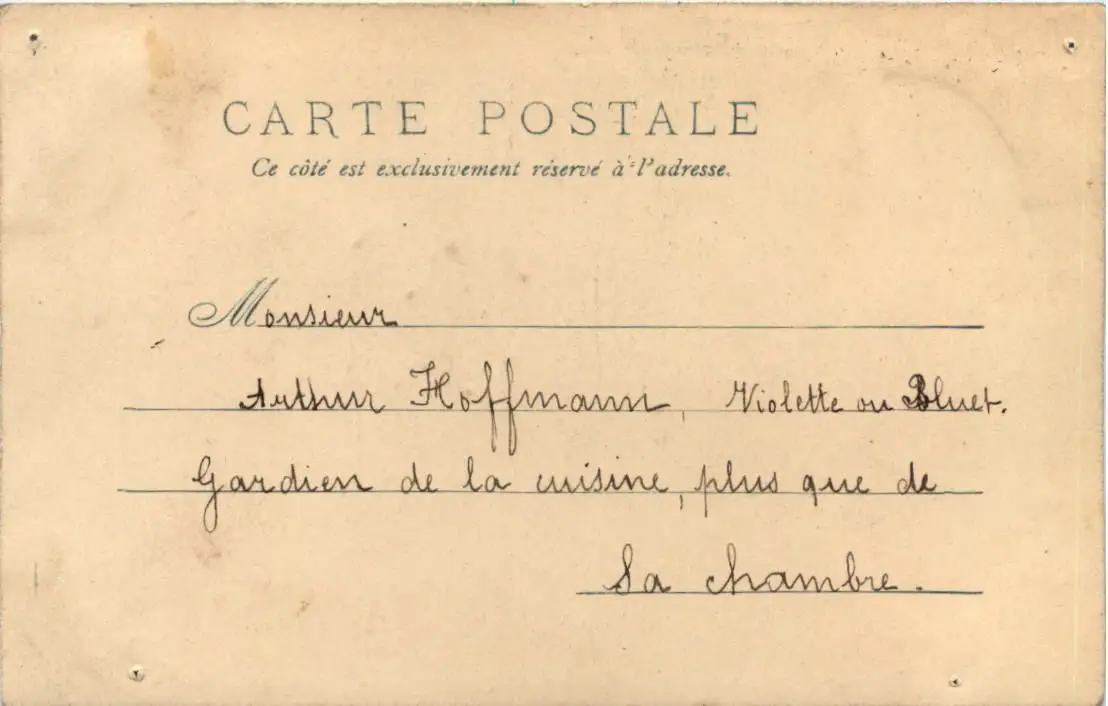 CARTE POSTALE
Ce côté est exclusivement réservé à l'adresse.
Monsieur
Arthur Hoffmann, Violette ou Bluet.
Gardien de la cuisine, plus que de
Sa chambre.